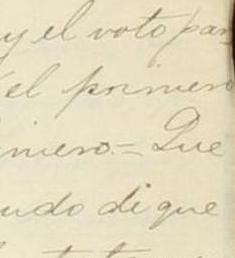 y el voto par
el primero
imero.= Que
udo di que